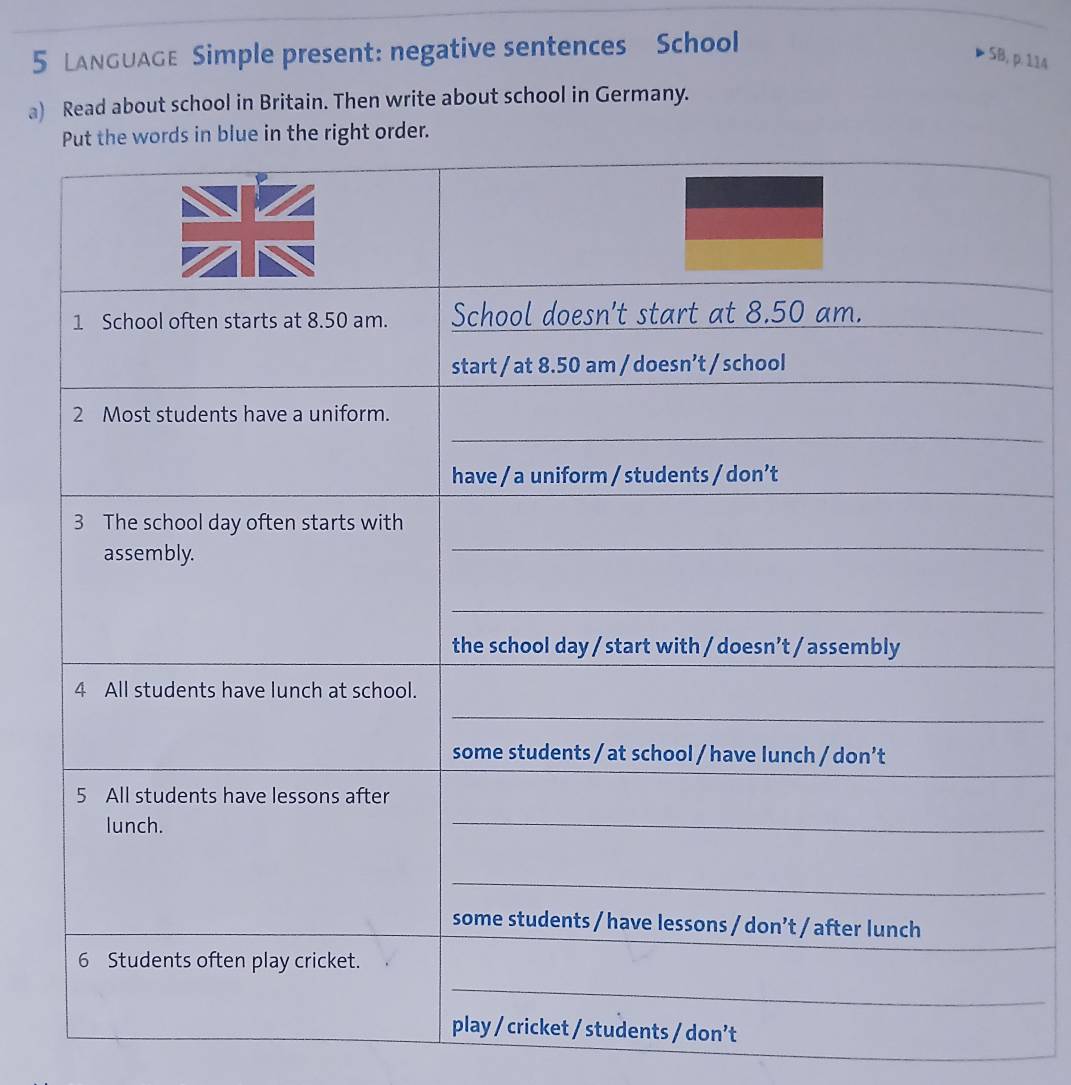 5 LANGUAGE Simple present: negative sentences School
▶ SB, p. 114
a) Read about school in Britain. Then write about school in Germany.
Put the words in blue in the right order.
1 School often starts at 8.50 am.
School doesn't start at 8.50 am.
start / at 8.50 am / doesn't / school
2 Most students have a uniform.
have / a uniform / students / don't
3 The school day often starts with
assembly.
the school day / start with / doesn't / assembly
4 All students have lunch at school.
some students / at school / have lunch / don't
5 All students have lessons after
lunch.
some students / have lessons / don't / after lunch
6 Students often play cricket.
play / cricket / students / don't